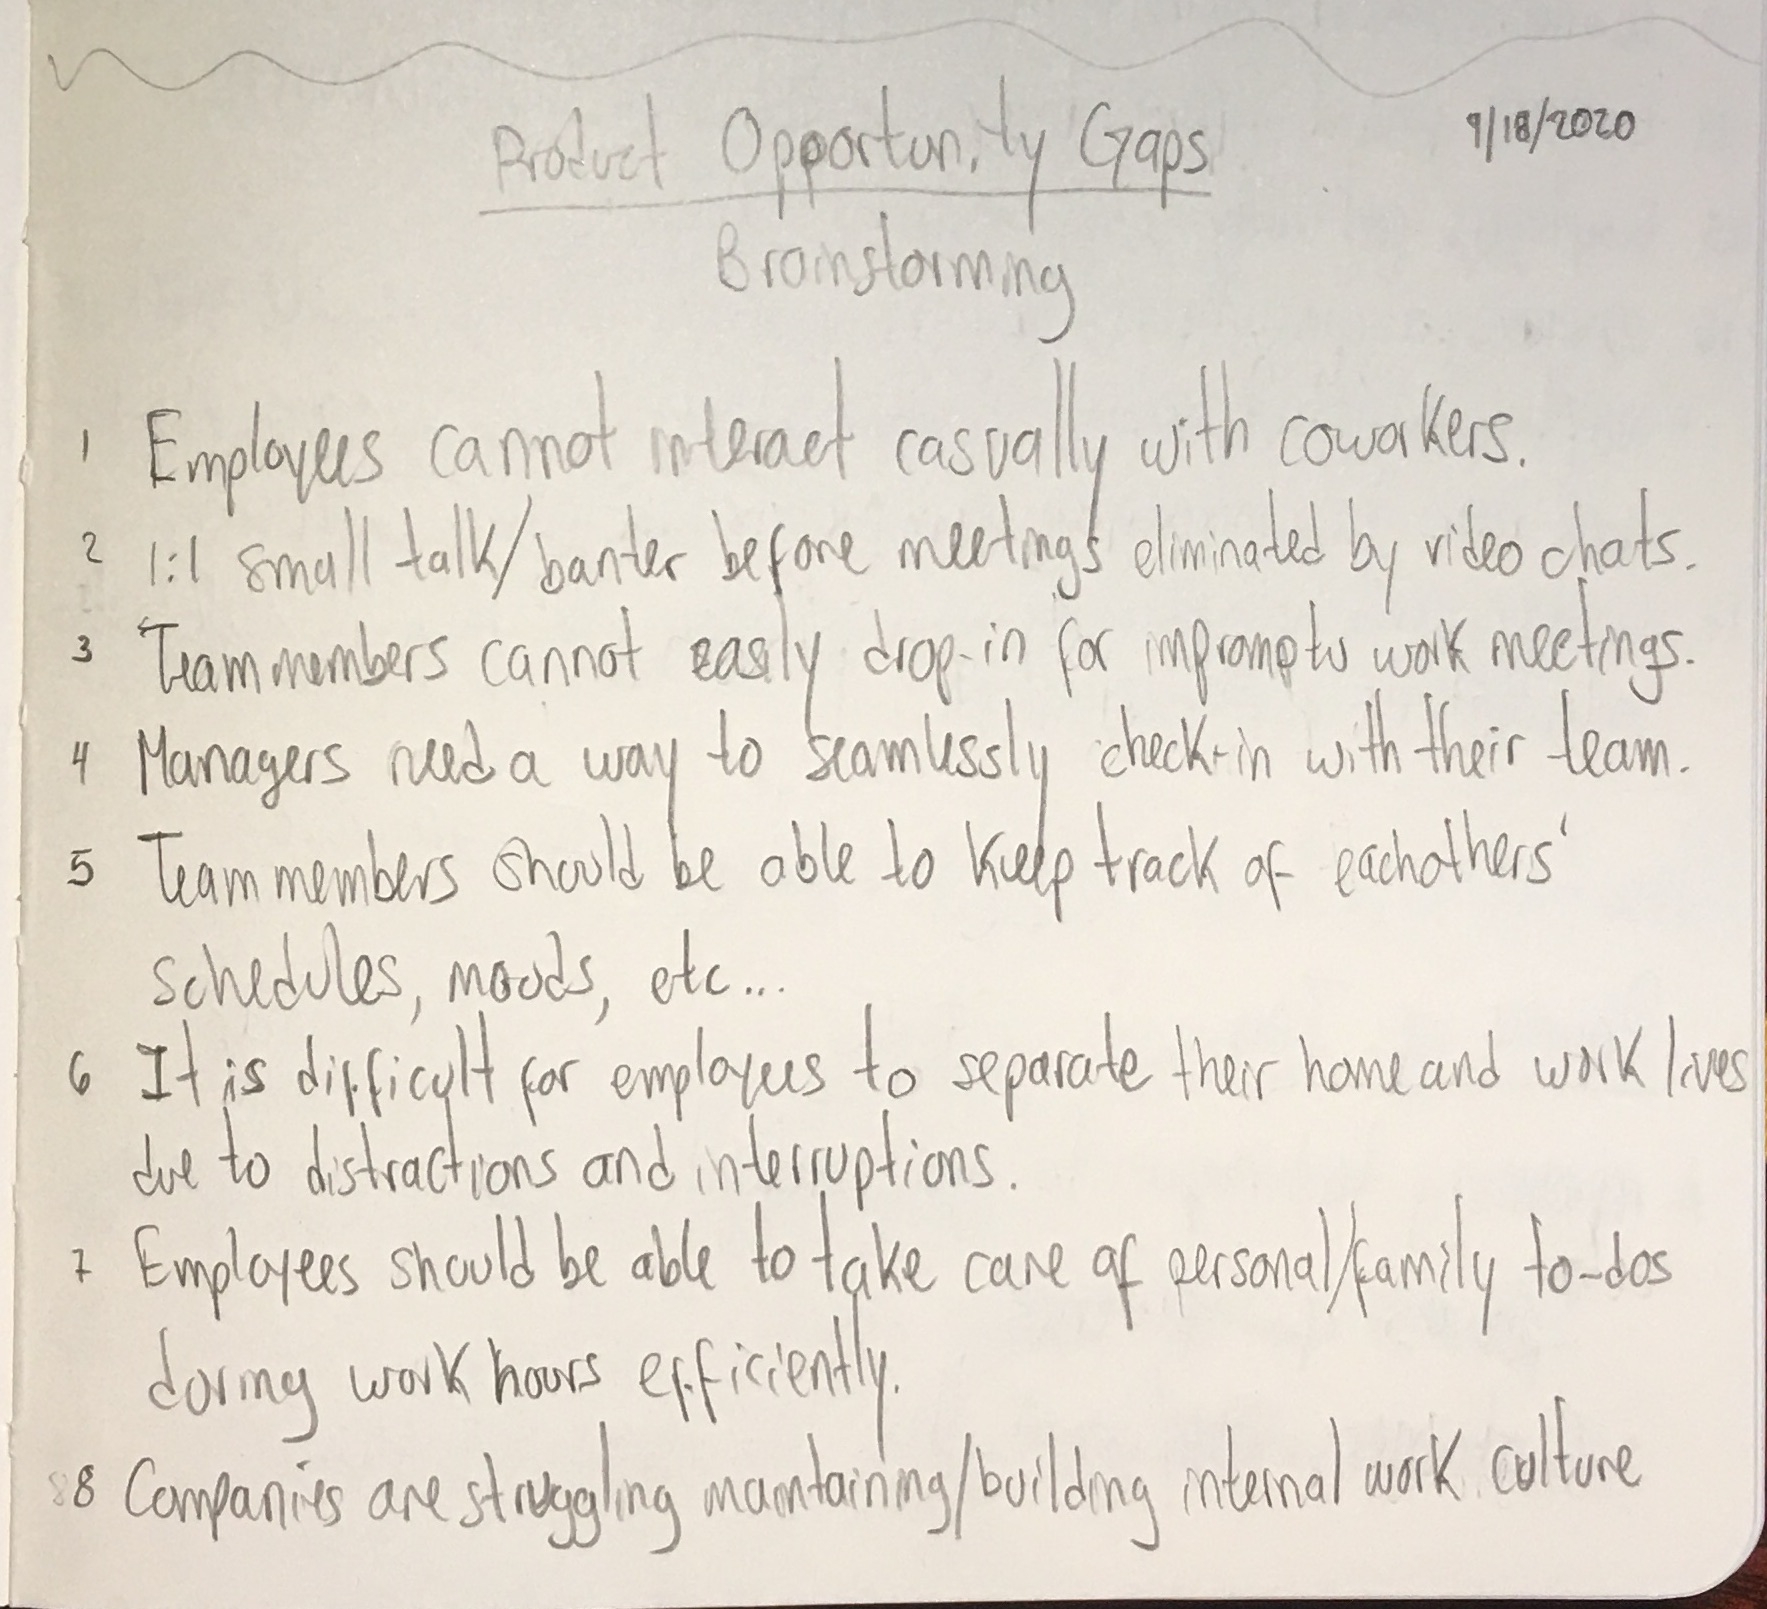 Product Opportunity Gaps
9/18/2020
Brainstorming
1 Employees cannot interact casually with coworkers.
2 1:1 small talk/banter before meetings eliminated by video chats.
3 Team members cannot easily drop-in for impromptu work meetings.
4 Managers need a way to seamlessly check-in with their team.
5 Team members should be able to keep track of eachothers'
schedules, moods, etc...
6 It is difficult for employees to separate their home and work lives
due to distractions and interruptions.
7 Employees should be able to take care of personal/family to-dos
during work hours efficiently.
8 Companies are struggling maintaining/building internal work culture